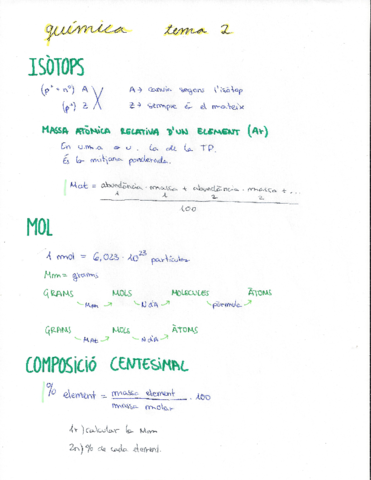 química tema 2
ISÒTOPS
(p⁺ + n⁰) A X A → canvia segons l'isòtop
(p⁺) Z Z → sempre és el mateix
MASSA ATÒMICA RELATIVA D'UN ELEMENT (Ar)
En u.m.a o u. la de la TP.
És la mitjana ponderada.
Mat = abundància₁ · massa₁ + abundància₂ · massa₂ + ...
100
MOL
1 mol = 6,023 · 10²³ partícules
Mm = grams
GRAMS MOLS MOLÈCULES ÀTOMS
Mm NdA fórmula
GRAMS MOLS ÀTOMS
MAt NdA
COMPOSICIÓ CENTESIMAL
% element = massa element · 100
massa molar
1r) calcular la Mm
2n) % de cada element.